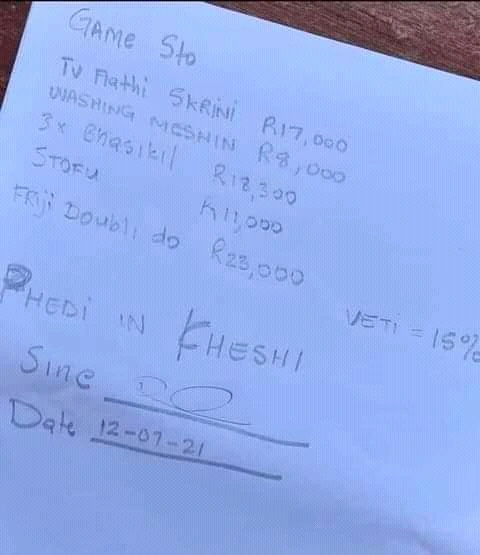 GAME Sto
TV Flathi SKRINI R17,000
WASHING MESHIN R8,000
3x Bhasikil R18,300
STOFU R11,000
FRIJI DOUBLI do R23,000
VETI = 15%
PHEDI IN KHESHI
Sine
Date 12-07-21